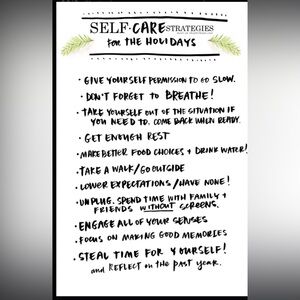 SELF-CARE STRATEGIES
FOR THE HOLIDAYS
· GIVE YOURSELF PERMISSION TO GO SLOW.
· DON'T FORGET TO BREATHE!
· TAKE YOURSELF OUT OF THE SITUATION IF
YOU NEED TO. COME BACK WHEN READY.
· GET ENOUGH REST
· MAKE BETTER FOOD CHOICES + DRINK WATER!
· TAKE A WALK/GO OUTSIDE
· LOWER EXPECTATIONS/HAVE NONE!
· UNPLUG. SPEND TIME WITH FAMILY +
FRIENDS WITHOUT SCREENS.
· ENGAGE ALL OF YOUR SENSES
· FOCUS ON MAKING GOOD MEMORIES
· STEAL TIME FOR YOURSELF!
and REFLECT on the PAST YEAR.